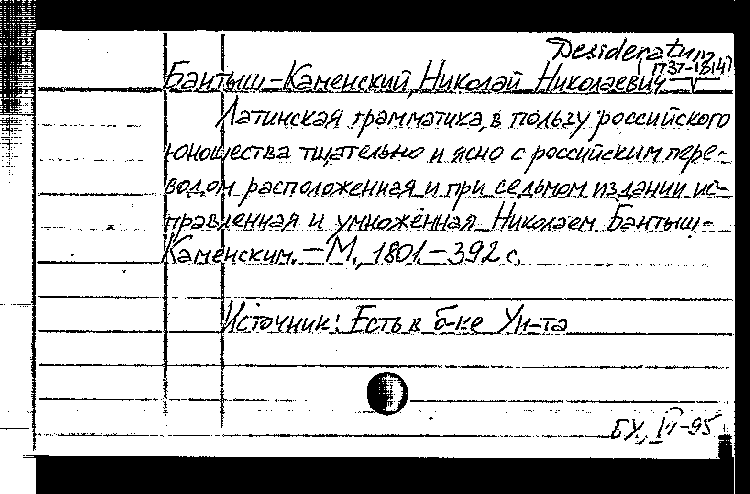 Desideratum
Бантыш-Каменский, Николай Николаевич (1737-1814)
Латинская грамматика, в пользу российского
юношества тщательно и ясно с российским пере-
водом расположенная и при седьмом издании ис-
правленная и умноженная Николаем Бантыш-
Каменским. – М., 1801 – 392 с.
Источник: Есть в б-ке Ун-та
БХ, III-95